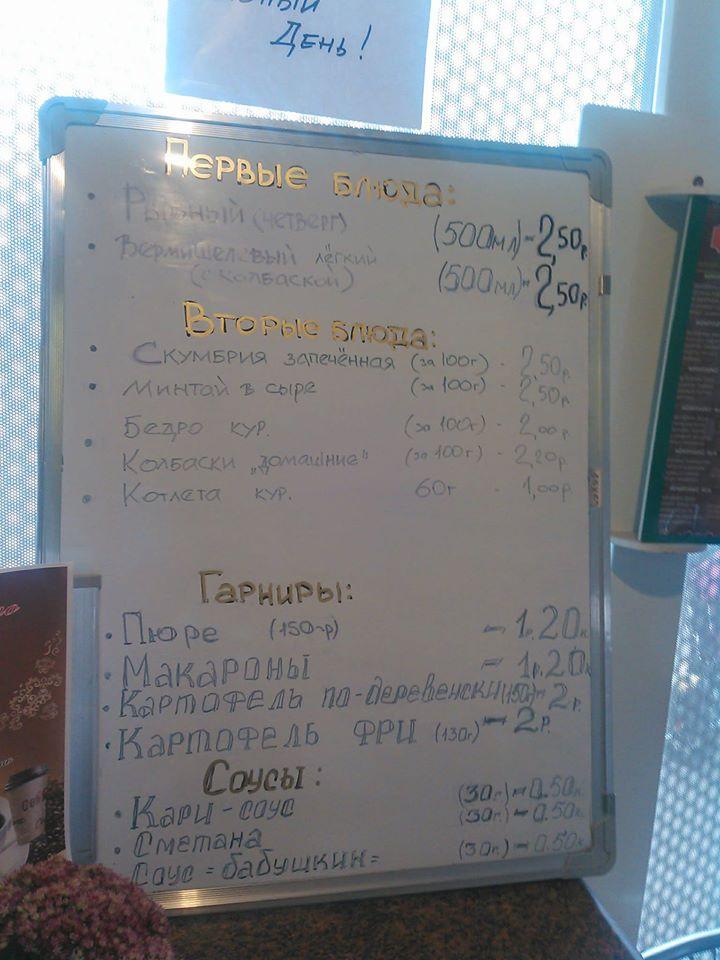 День!
Первые блюда:
Рыбный (четверг) (500мл) - 2,50р.
Вермишелевый лёгкий
(с колбаской) (500мл) - 2,50р.
Вторые блюда:
Скумбрия запечённая (за 100г) - 2,50р.
Минтай в сыре (за 100г) - 2,50р.
Бедро кур. (за 100г) - 2,00р.
Колбаски „домашние" (за 100г) - 2,20р.
Котлета кур. 60г - 1,00р.
Гарниры:
Пюре (150гр) - 1р.20к.
Макароны - 1р.20к
Картофель по-деревенски (150г) - 2р.
Картофель фри (130г) - 2р.
Соусы:
Кари - соус (30г.) - 0.50к.
Сметана (30г.) - 0.50к.
Соус = бабушкин = (30г.) - 0.50к.